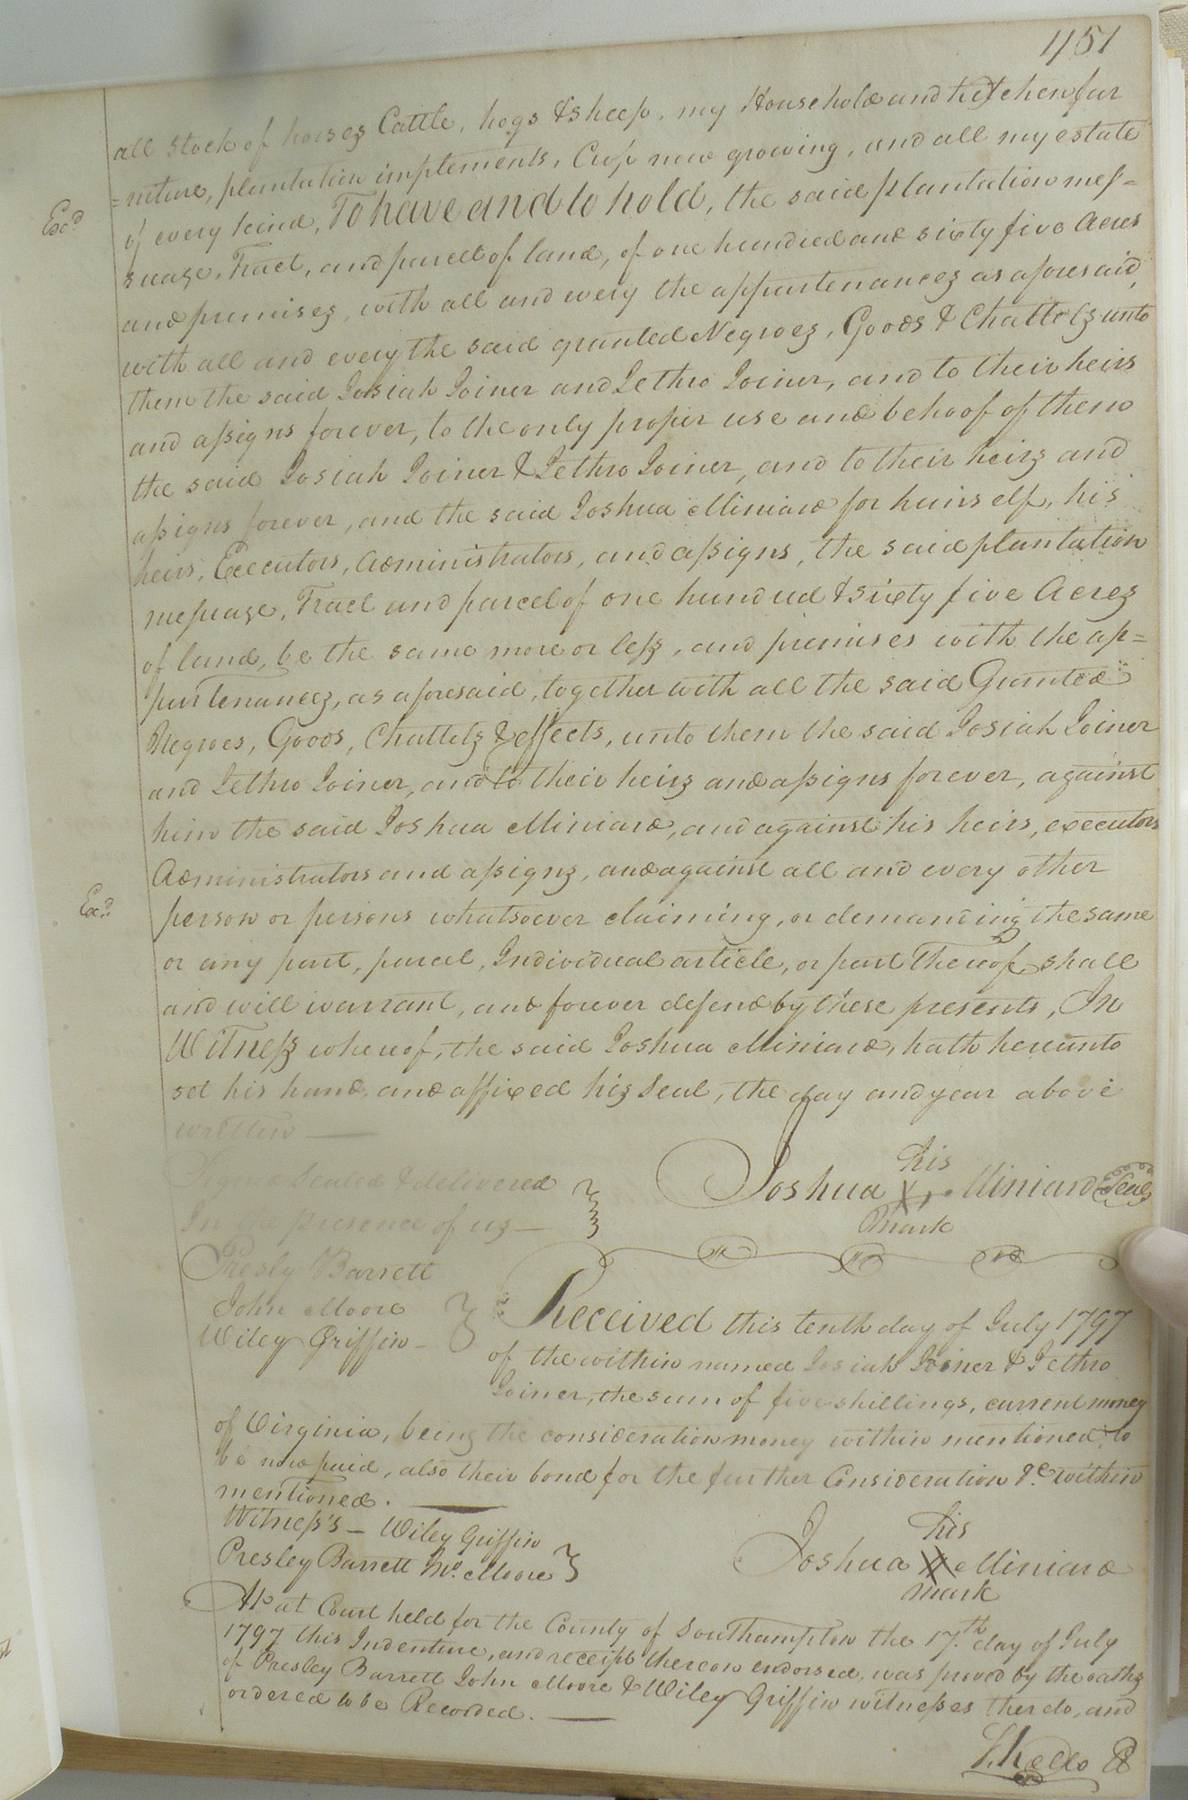 451
all stock of horses Cattle, hogs & sheep, my Household and kitchen fur
=niture, plantation implements, Crop now growing, and all my estate
Exd.
of every kind, To have and to hold, the said plantation mes=
suage, Tract, and parcel of land, of one hundred and sixty five Acres
and premises, with all and every the appurtenances as aforesaid,
with all and every the said granted Negroes, Goods & Chattels unto
them the said Josiah Joiner and Jethro Joiner, and to their heirs
and assigns forever, to the only proper use and behoof of them
the said Josiah Joiner & Jethro Joiner, and to their heirs and
assigns forever, and the said Joshua Miniard for himself, his
heirs, Executors, Administrators, and assigns, the said plantation
messuage, Tract and parcel of one hundred & sixty five Acres
of land, be the same more or less, and premises with the ap=
purtenances, as aforesaid, together with all the said Granted
Negroes, Goods, Chattels & effects, unto them the said Josiah Joiner
and Jethro Joiner, and to their heirs and assigns forever, against
him the said Joshua Miniard, and against his heirs, executors
Administrators and assigns, and against all and every other
Exd.
person or persons whatsoever claiming, or demanding the same
or any part, parcel, Individual article, or part thereof shall
and will warrant, and forever defend by these presents, In
Witness whereof, the said Joshua Miniard, hath hereunto
set his hand, and affixed his Seal, the day and year above
written —
Sealed & delivered
In the presence of us —
his
Joshua X Miniard Seal
mark
Presly Barrett
John Moore
Wiley Griffin —
Received this tenth day of July 1797
of the within named Josiah Joiner & Jethro
Joiner, the sum of five shillings, current money
of Virginia, being the consideration money within mentioned, to
be now paid, also their bond for the further Consideration &c. within
mentioned. —
Witness's — Wiley Griffin
Presley Barrett Jno. Moore
his
Joshua X Miniard
mark
At at Court held for the County of Southampton the 17.th day of July
1797 this Indenture, and receipt thereon endorsed, was proved by the oaths
of Presley Barrett John Moore & Wiley Griffin witnesses thereto, and
ordered to be Recorded. —
Kello